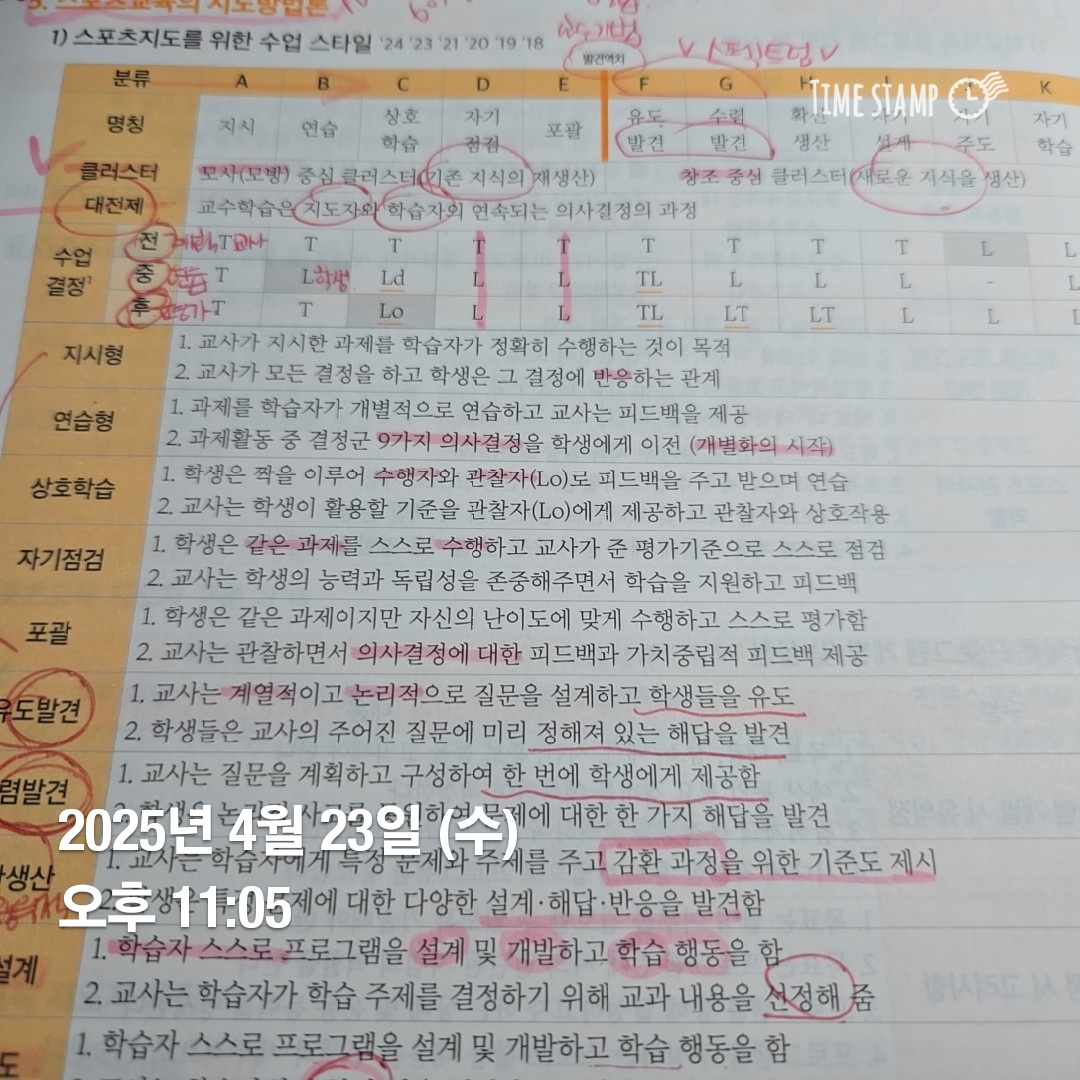 3. 스포츠교육의 지도방법론
1) 스포츠지도를 위한 수업 스타일 '24 '23 '21 '20 '19 '18
교수기법
발견역치
∨ 스펙트럼 ∨
TIME STAMP
분류 A B C D E F G H K
명칭 지시 연습 상호 학습 자기 점검 포괄 유도 발견 수렴 발견 확산 생산 자기 설계 자기 주도 자기 학습
클러스터 모사(모방) 중심 클러스터(기존 지식의 재생산) 창조 중심 클러스터(새로운 지식을 생산)
대전제 교수학습은 지도자와 학습자의 연속되는 의사결정의 과정
수업 결정 전 T 교사 T T T T T T T T L L
중 T L 학생 Ld L L TL L L L - L
후 평가 T T Lo L L TL LT LT L L L
지시형 1. 교사가 지시한 과제를 학습자가 정확히 수행하는 것이 목적
2. 교사가 모든 결정을 하고 학생은 그 결정에 반응하는 관계
연습형 1. 과제를 학습자가 개별적으로 연습하고 교사는 피드백을 제공
2. 과제활동 중 결정군 9가지 의사결정을 학생에게 이전 (개별화의 시작)
상호학습 1. 학생은 짝을 이루어 수행자와 관찰자(Lo)로 피드백을 주고 받으며 연습
2. 교사는 학생이 활용할 기준을 관찰자(Lo)에게 제공하고 관찰자와 상호작용
자기점검 1. 학생은 같은 과제를 스스로 수행하고 교사가 준 평가기준으로 스스로 점검
2. 교사는 학생의 능력과 독립성을 존중해주면서 학습을 지원하고 피드백
포괄 1. 학생은 같은 과제이지만 자신의 난이도에 맞게 수행하고 스스로 평가함
2. 교사는 관찰하면서 의사결정에 대한 피드백과 가치중립적 피드백 제공
유도발견 1. 교사는 계열적이고 논리적으로 질문을 설계하고 학생들을 유도
2. 학생들은 교사의 주어진 질문에 미리 정해져 있는 해답을 발견
렴발견 1. 교사는 질문을 계획하고 구성하여 한 번에 학생에게 제공함
문제에 대한 한 가지 해답을 발견
생산 1. 교사는 학습자에게 특정 문제와 주제를 주고 감환 과정을 위한 기준도 제시
문제에 대한 다양한 설계·해답·반응을 발견함
설계 1. 학습자 스스로 프로그램을 설계 및 개발하고 학습 행동을 함
2. 교사는 학습자가 학습 주제를 결정하기 위해 교과 내용을 선정해 줌
도 1. 학습자 스스로 프로그램을 설계 및 개발하고 학습 행동을 함
2025년 4월 23일 (수)
오후 11:05